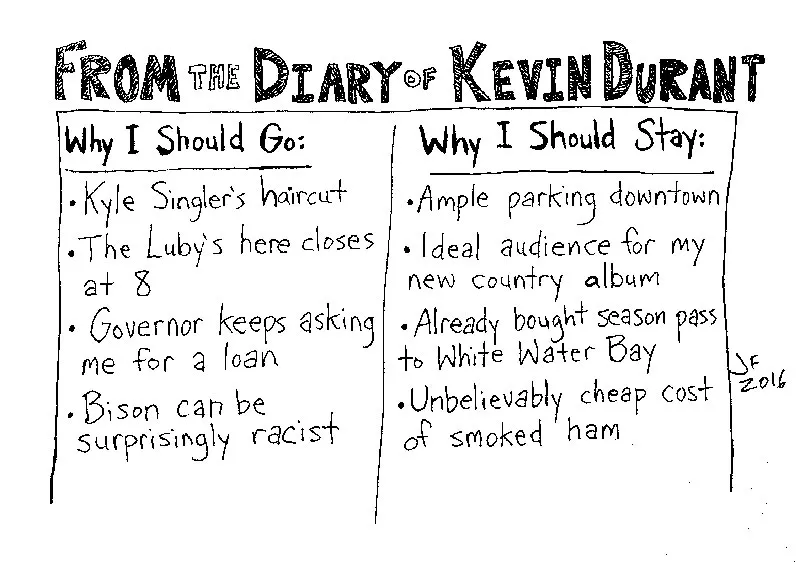 FROM THE DIARY OF KEVIN DURANT
Why I Should Go:
• Kyle Singler's haircut
• The Luby's here closes
at 8
• Governor keeps asking
me for a loan
• Bison can be
surprisingly racist
Why I Should Stay:
• Ample parking downtown
• Ideal audience for my
new country album
• Already bought season pass
to White Water Bay
• Unbelievably cheap cost
of smoked ham
JF
2016